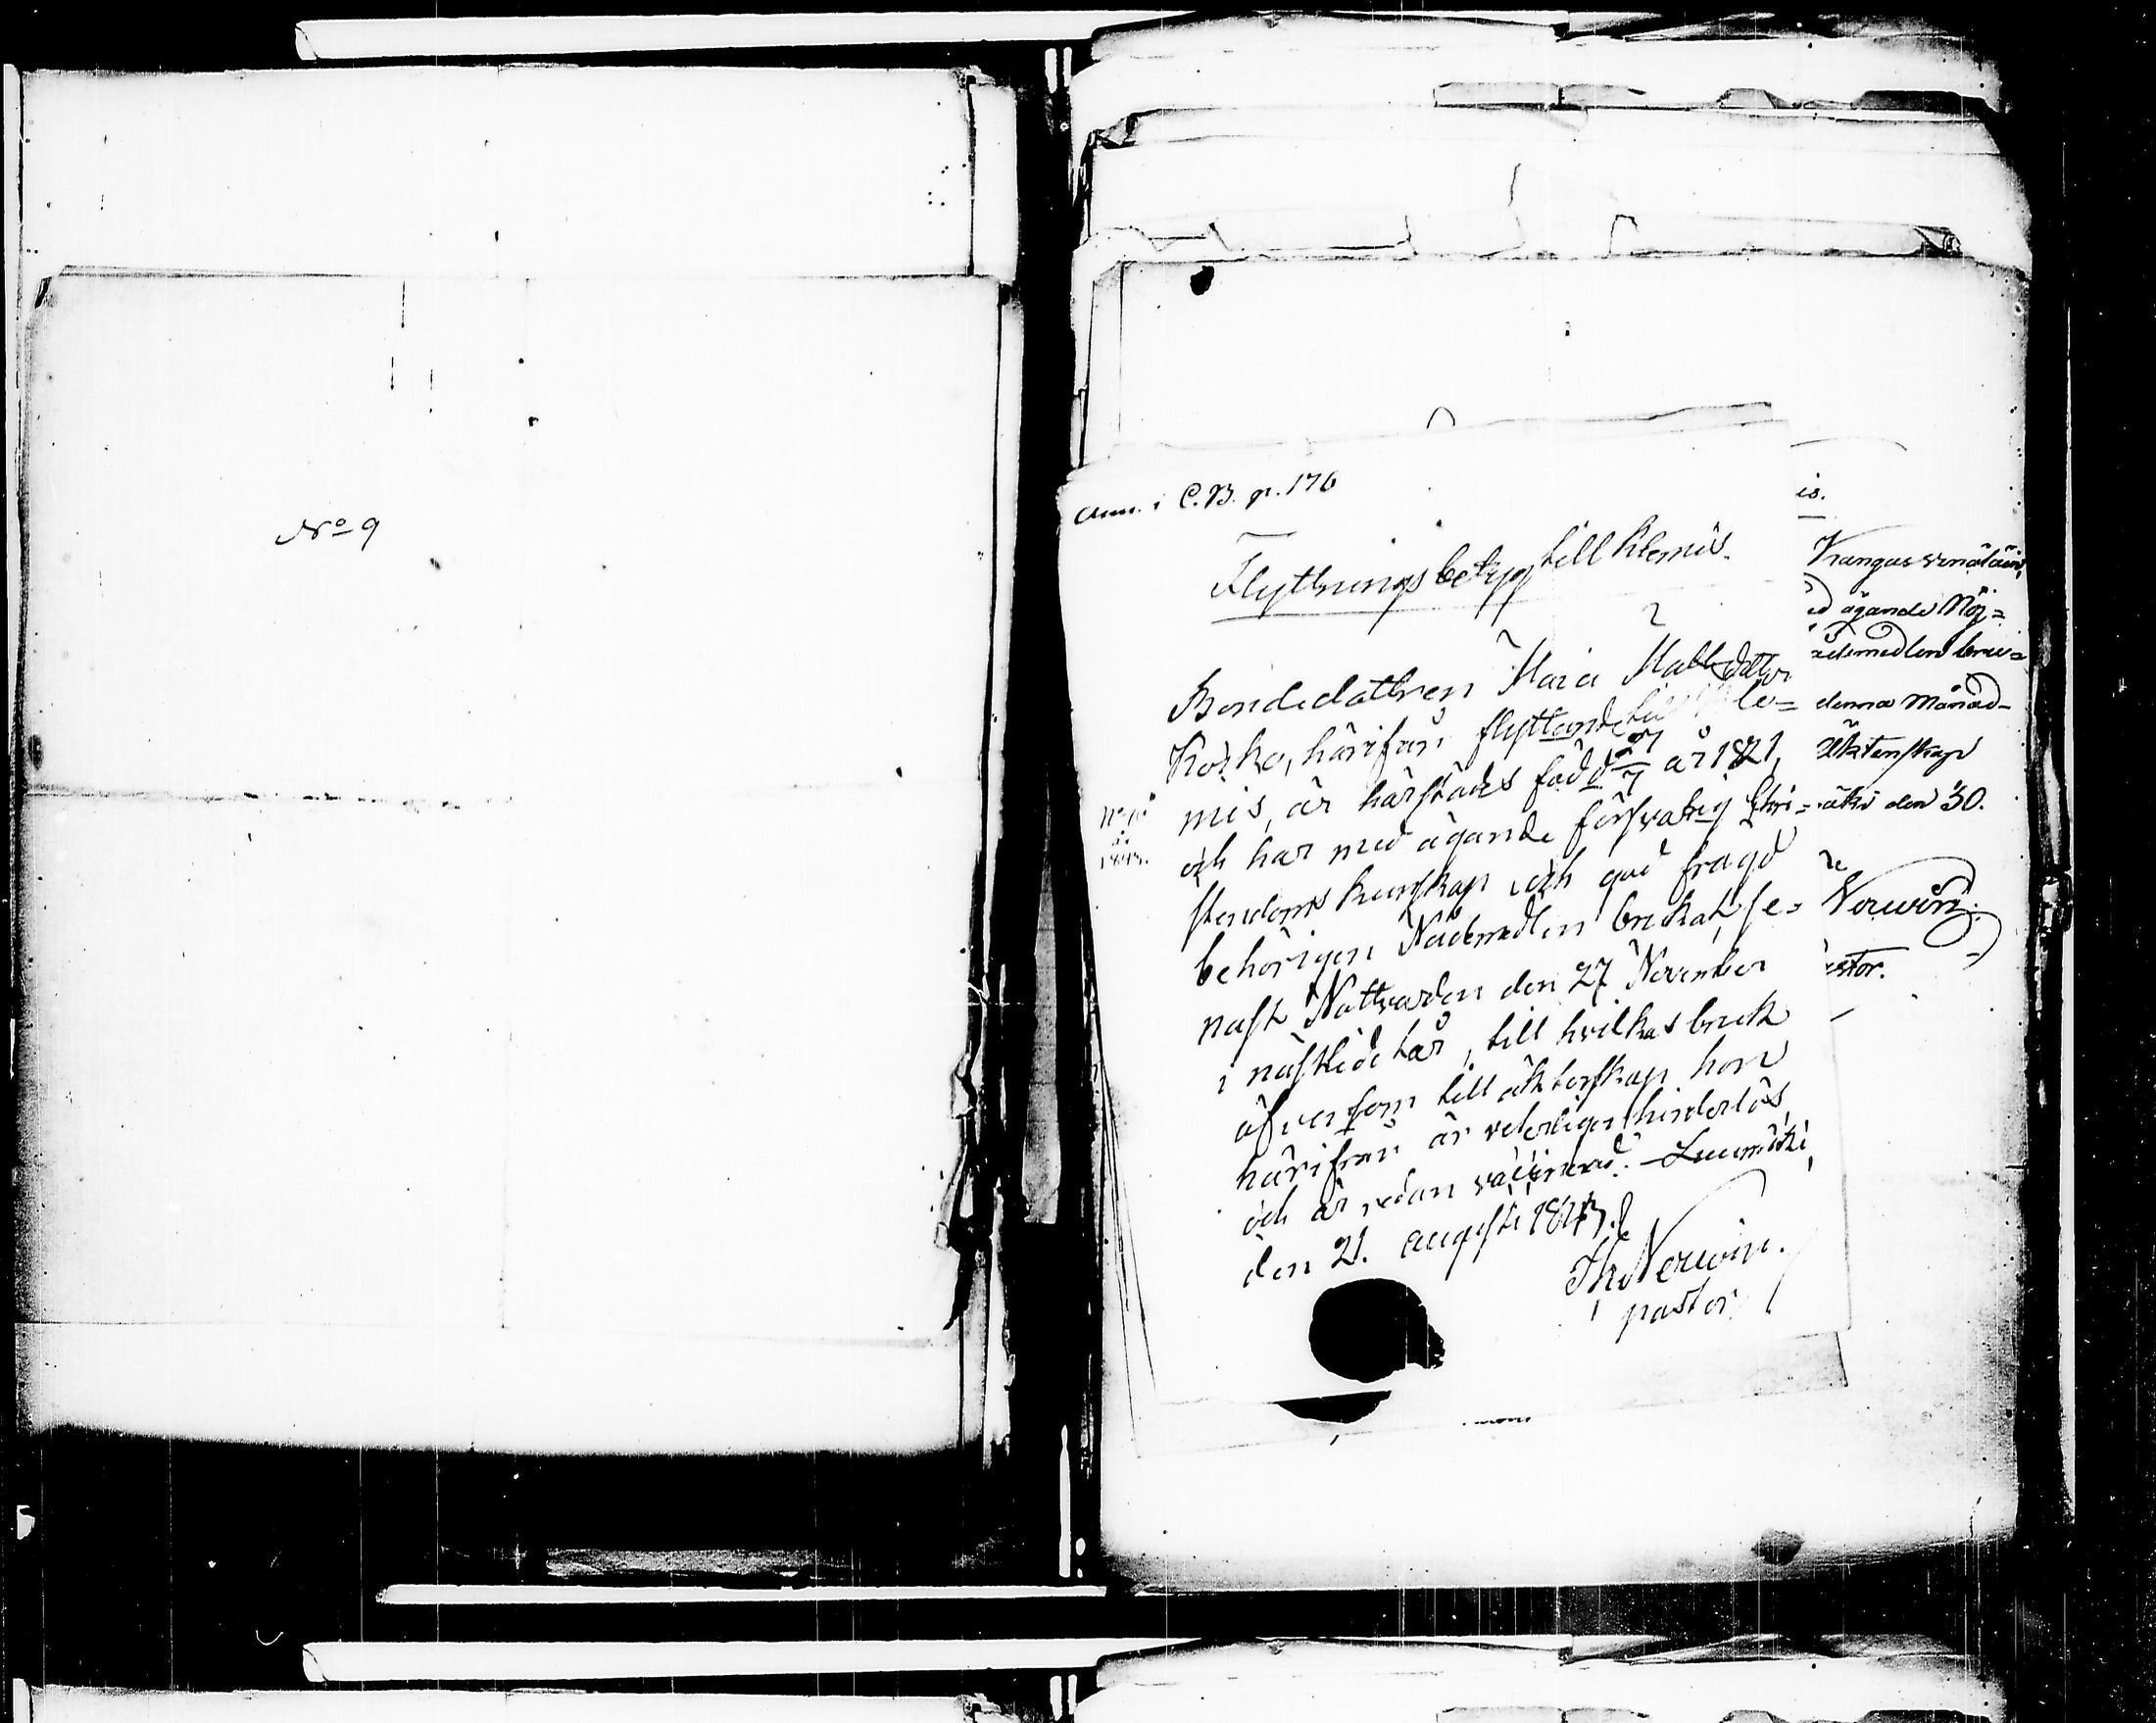 No 9
Ann. i C.B. p. 176
Flyttningsbetyg till Klemis.
Bondedottren Maria Mattsdotter
Kosko, härifrån flyttande till Kle=
mis, är härstädes född 27/7 år 1821,
och har med ägande försvarlig Chri=
stendoms kunskap och god frägd
behörigen Nådemedlen brukat, se=
nast Nattvarden den 27 November
i nästledet år, till hvilkas bruk
äfven som till äktenskap hon
härifrån är veterligen hinderlös,
och är redan vaccinerad. Luumäki,
den 21. augusti 1843.
Th. Nerwin.
pastor
is.
Kangasvmäläin,
ed ägande Nöj=
ådemedlen bru=
denna Månad
äktenskap
äki den 30.
Nerwin.
astor.